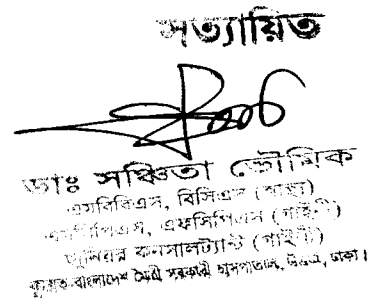 সত্যায়িত
ডাঃ সঞ্চিতা ভৌমিক
এমবিবিএস, বিসিএস (স্বাস্থ্য)
এমসিপিএস, এফসিপিএস (গাইনী)
জুনিয়র কনসালট্যান্ট (গাইনী)
কুয়েত-বাংলাদেশ মৈত্রী সরকারী হাসপাতাল, উত্তরা, ঢাকা।